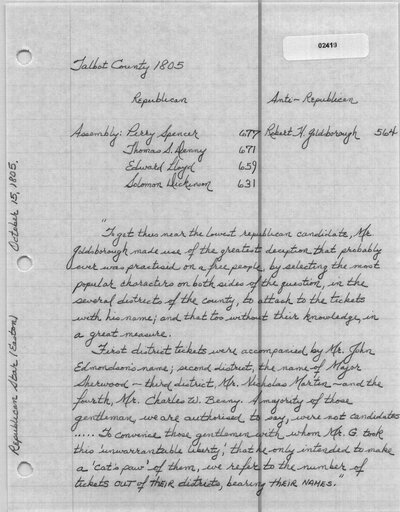 02413
Talbot County 1805
Republican Anti-Republican
Assembly: Perry Spencer 677 Robert H. Goldsborough 564
Thomas S. Denny 671
Edward Lloyd 659
Solomon Dickinson 631
"To get thus near the lowest republican candidate, Mr.
Goldsborough made use of the greatest deception that probably
ever was practised on a free people, by selecting the most
popular characters on both sides of the question, in the
several districts of the county, to attach to the tickets
with his name; and that too without their knowledge, in
a great measure.
First district tickets were accompanied by Mr. John
Edmondson's name; second district, the name of Major
Sherwood — third district, Mr. Nicholas Martin — and the
fourth, Mr. Charles W. Benny. A majority of those
gentleman, we are authorised to say, were not candidates
..... To convence those gentlemen with whom Mr. G. took
this unwarrantable liberty, that he only intended to make
a 'cat's paw' of them, we refer to the number of
tickets OUT of THEIR districts, bearing THEIR NAMES."
Republican Star (Easton) October 15, 1805.